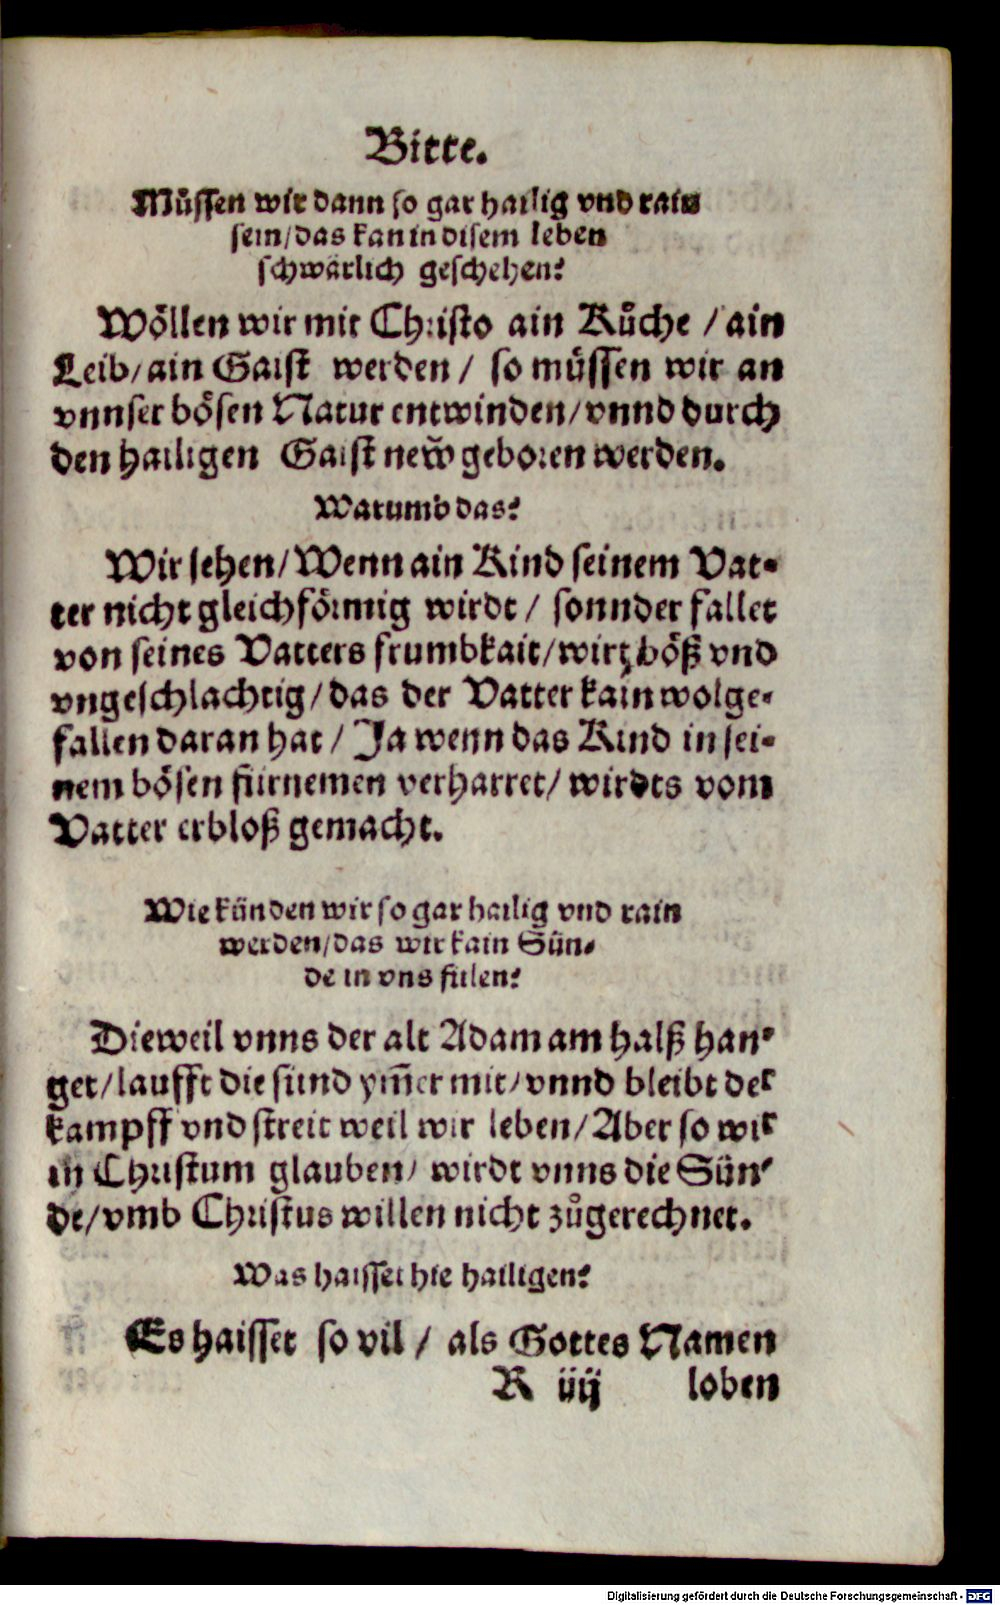 Bitte.
Muͤssen wir dann so gar hailig vnd rain
sein/das kan in disem leben
schwaͤrlich geschehen?
Woͤllen wir mit Christo ain Kuͦche / ain
Leib/ain Gaist werden / so muͤssen wir an
vnnser boͤsen Natur entwinden/vnnd durch
den hailigen Gaist new̃ geboren werden.
Warumb das?
Wir sehen/Wenn ain Kind seinem Vat-
ter nicht gleichfoͤrmig wirdt / sonnder fallet
von seines Vatters frumbkait/wirt boͤß vnd
vngeschlachtig/das der Vatter kain wolge-
fallen daran hat / Ja wenn das Kind in sei-
nem boͤsen fürnemen verharret/ wirdts vom
Vatter erbloß gemacht.
Wie künden wir so gar hailig vnd rain
werden/das wir kain Sün-
de in vns fülen?
Dieweil vnns der alt Adam am halß han-
get/laufft die sünd ym̃er mit/vnnd bleibt der
kampff vnd streit weil wir leben/Aber so wir
in Christum glauben/ wirdt vnns die Sün-
de/vmb Christus willen nicht zuͦgerechnet.
Was haisset hie hailigen?
Es haisset so vil / als Gottes Namen
K iiij loben
Digitalisierung gefördert durch die Deutsche Forschungsgemeinschaft - DFG